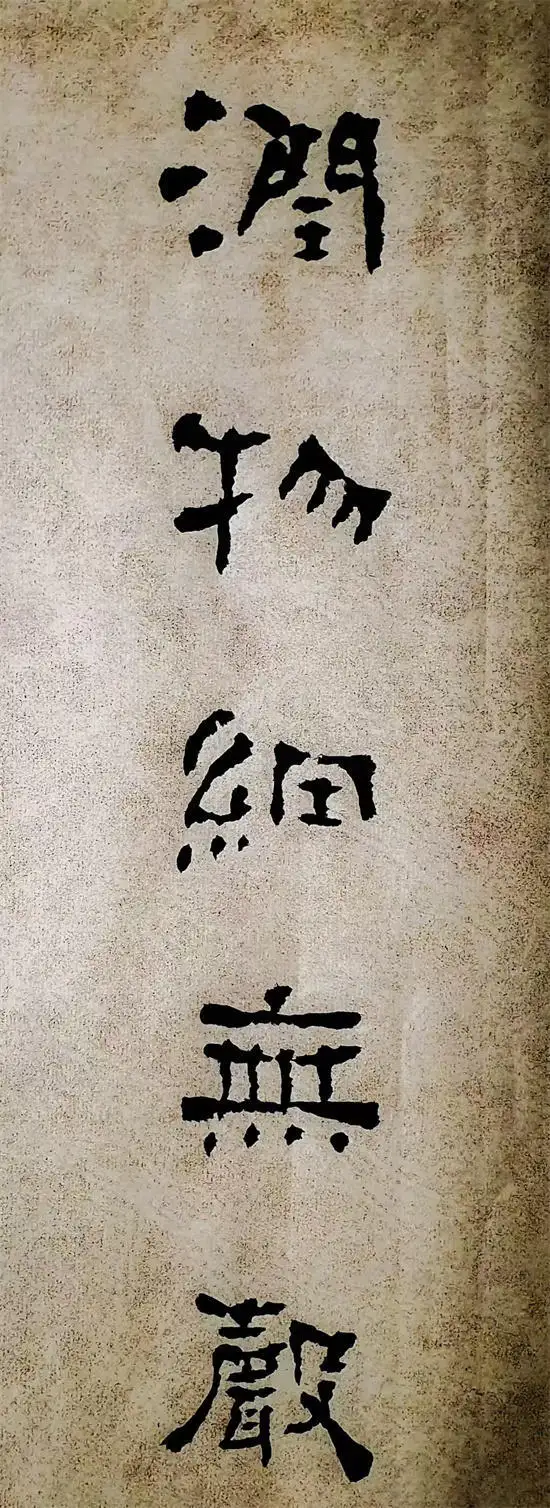 潤物細無聲